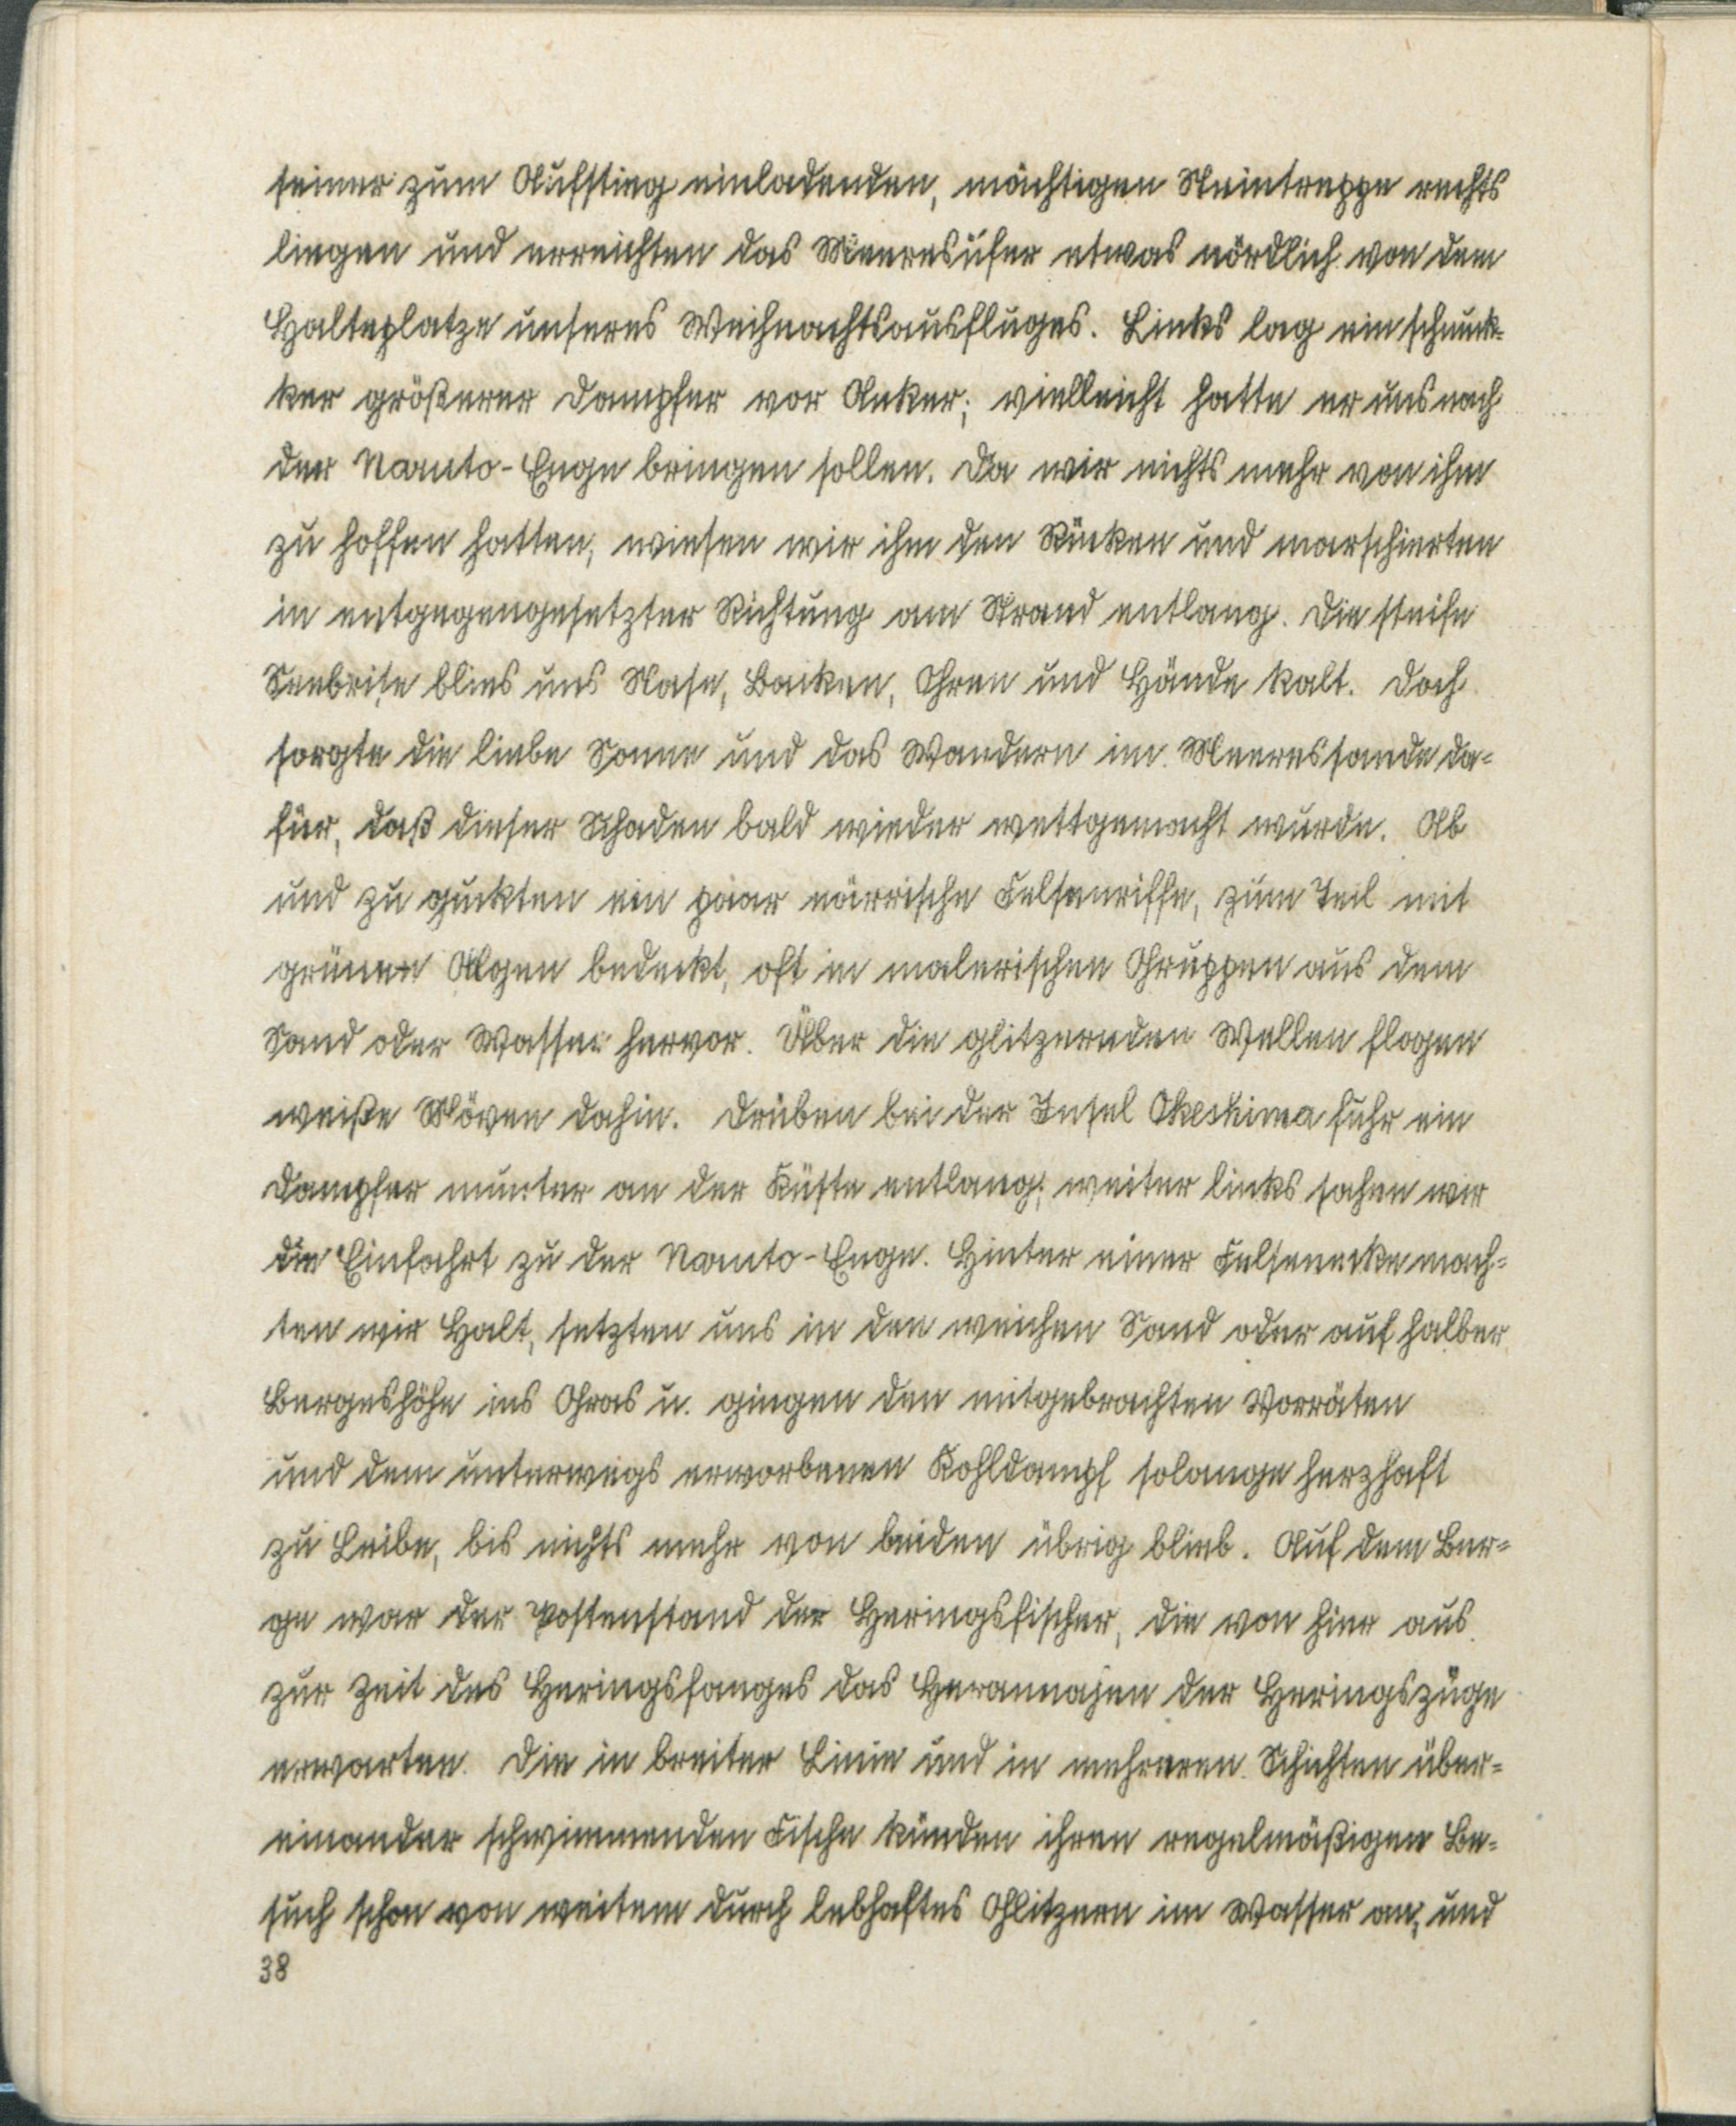 seiner zum Aufstieg einladenden, mächtigen Steintreppe rechts
liegen und erreichten das Meeresufer etwas nördlich von dem
Halteplatze unseres Weihnachtsausfluges. Links lag ein schmuk-
ker größerer Dampfer vor Anker; vielleicht hatte er uns nach
der Naruto-Enge bringen sollen. Da wir nichts mehr von ihm
zu hoffen hatten, wiesen wir ihm den Rücken und marschierten
in entgegengesetzter Richtung am Strand entlang. Die steife
Seebrise blies uns Nase, Backen, Ohren und Hände kalt. Doch
sorgte die liebe Sonne und das Wandern im Meeressande da-
für, daß dieser Schaden bald wieder wettgemacht wurde. Ab
und zu guckten ein paar närrische Felsenriffe, zum Teil mit
grünen Algen bedeckt, oft in malerischen Gruppen aus dem
Sand oder Wasser hervor. Über die glitzernden Wellen flogen
weiße Möven dahin. Drüben bei der Insel Okeshima fuhr ein
Dampfer munter an der Küste entlang; weiter links sahen wir
die Einfahrt zu der Naruto-Enge. Hinter einer Felsenecke mach-
ten wir Halt, setzten uns in den weichen Sand oder auf halber
Bergeshöhe ins Gras u. gingen den mitgebrachten Vorräten
und dem unterwegs erworbenen Kohldampf solange herzhaft
zu Leibe, bis nichts mehr von beiden übrig blieb. Auf dem Ber-
ge war der Postenstand der Heringsfischer, die von hier aus
zur Zeit des Heringsfanges das Herannahen der Heringszüge
erwarten. Die in breiter Linie und in mehreren Schichten über-
einander schwimmenden Fische künden ihren regelmäßigen Be-
such schon von weitem durch lebhaftes Glitzern im Wasser an; und
38